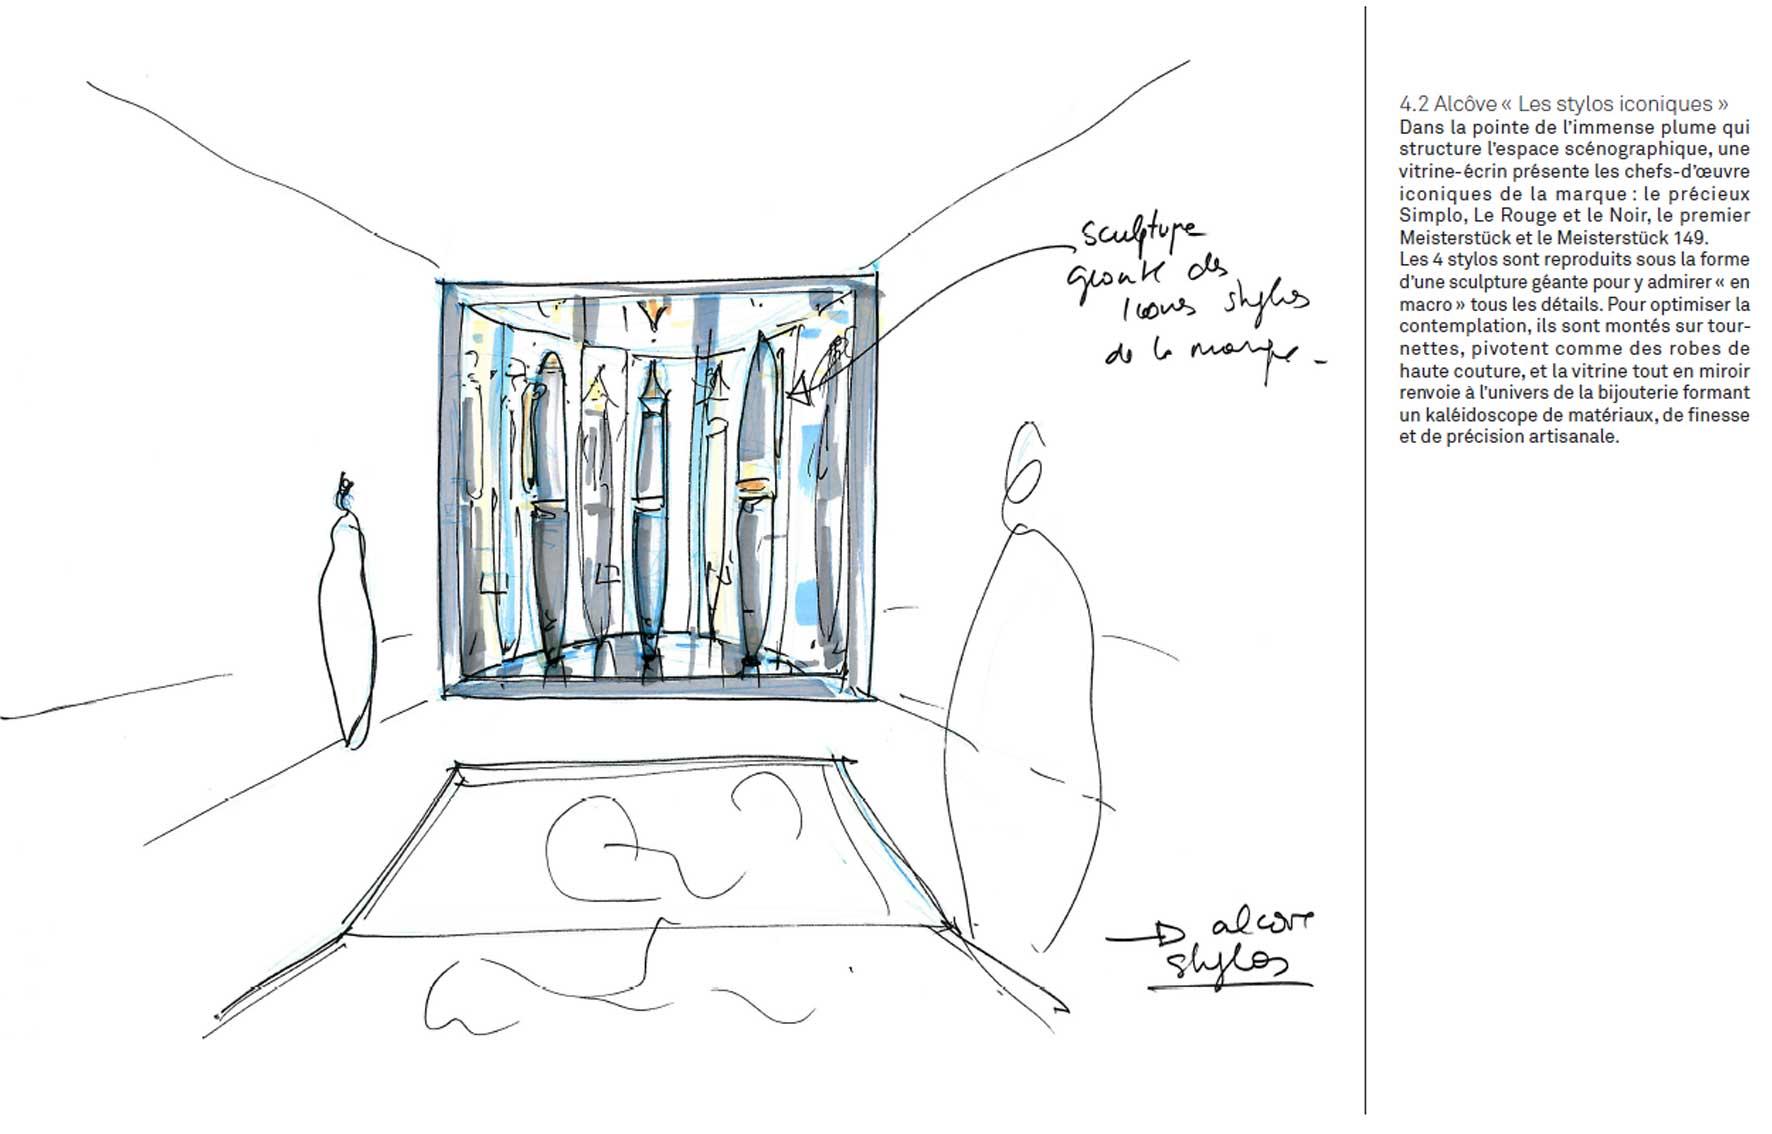 sculpture
géante des
icones stylos
de la marque -
alcove
stylos
4.2 Alcôve « Les stylos iconiques »
Dans la pointe de l'immense plume qui
structure l'espace scénographique, une
vitrine-écrin présente les chefs-d'œuvre
iconiques de la marque : le précieux
Simplo, Le Rouge et le Noir, le premier
Meisterstück et le Meisterstück 149.
Les 4 stylos sont reproduits sous la forme
d'une sculpture géante pour y admirer « en
macro » tous les détails. Pour optimiser la
contemplation, ils sont montés sur tour-
nettes, pivotent comme des robes de
haute couture, et la vitrine tout en miroir
renvoie à l'univers de la bijouterie formant
un kaléidoscope de matériaux, de finesse
et de précision artisanale.